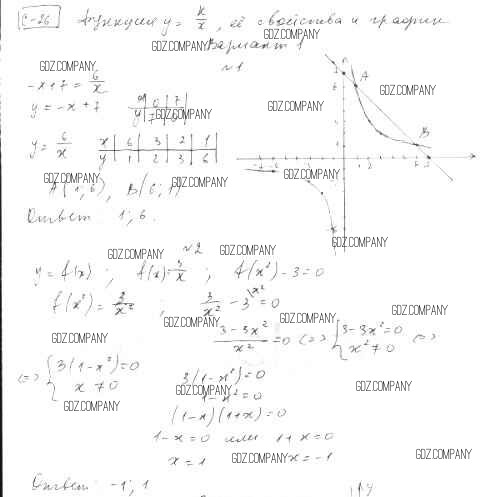 С-26 Функция y = k/x, её свойства и график
GDZ.COMPANY GDZ.COMPANY
Вариант 1
№1
GDZ.COMPANY GDZ.COMPANY
-x+7 = 6/x
y = -x+7
x 0 7
y 7 0
GDZ.COMPANY GDZ.COMPANY GDZ.COMPANY
A
B
y = 6/x
x 6 3 2 1
y 1 2 3 6
GDZ.COMPANY GDZ.COMPANY GDZ.COMPANY
A(1;6), B(6;1)
Ответ: 1; 6.
GDZ.COMPANY
№2
GDZ.COMPANY GDZ.COMPANY
y = f(x); f(x) = 3/x; f(x²) - 3 = 0
f(x²) = 3/x²; 3/x² - 3\x² = 0
GDZ.COMPANY GDZ.COMPANY GDZ.COMPANY
(3-3x²)/x² = 0 <=> {3-3x²=0 x²≠0 <=>
GDZ.COMPANY GDZ.COMPANY
<=> {3(1-x²)=0 x≠0
3(1-x²)=0
GDZ.COMPANY GDZ.COMPANY GDZ.COMPANY
1-x²=0
(1-x)(1+x)=0
1-x=0 или 1+x=0
x=1 GDZ.COMPANY x=-1 GDZ.COMPANY
Ответ: -1; 1